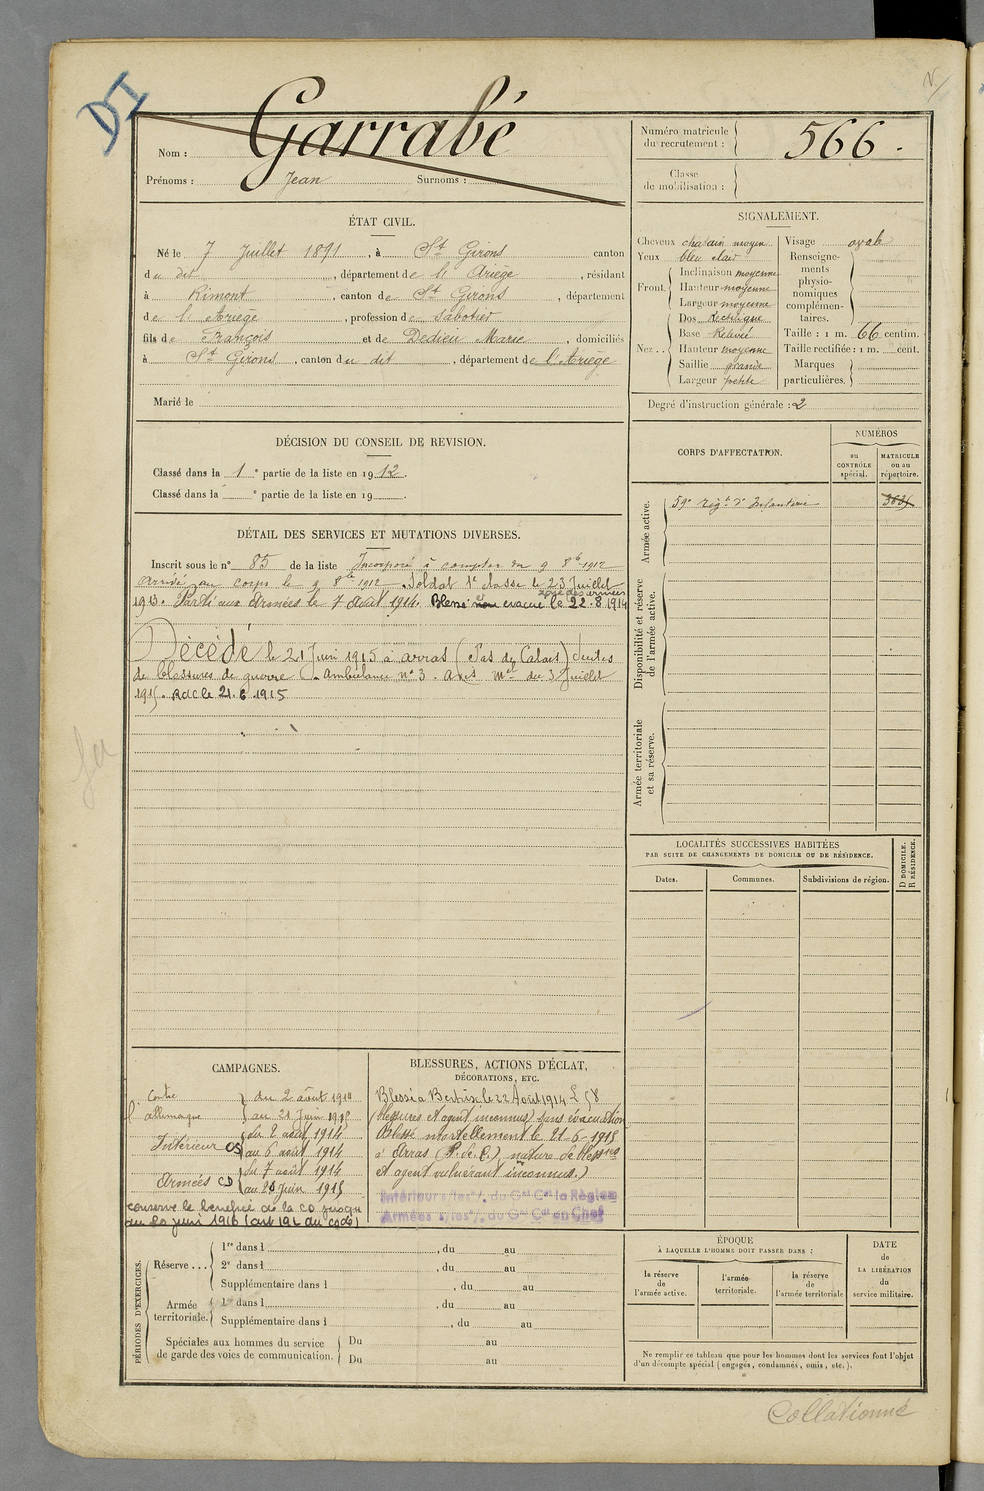 DI
Nom : Garrabé
Prénoms : Jean Surnoms :
Numéro matricule du recrutement : 566.
Classe de mobilisation :
ÉTAT CIVIL.
Né le 7 Juillet 1891, à St Girons canton
du dit, département de l'Ariège, résidant
à Rimont, canton de St Girons, département
de l'Ariège, profession de sabotier
fils de François et de Dedieu Marie, domiciliés
à St Girons, canton du dit, département de l'Ariège
Marié le
SIGNALEMENT.
Cheveux chatain moyen
Yeux bleu clair
Front. Inclinaison moyenne
Hauteur moyenne
Largeur moyenne
Nez .. Dos Rectiligne
Base Relevée
Hauteur moyenne
Saillie grande
Largeur petite
Visage ovale
Renseigne-
ments
physio-
nomiques
complémen-
taires.
Taille : 1 m. 66 centim.
Taille rectifiée : 1 m. cent.
Marques
particulières.
Degré d'instruction générale : 2
DÉCISION DU CONSEIL DE REVISION.
Classé dans la 1e partie de la liste en 1912.
Classé dans la e partie de la liste en 19 .
CORPS D'AFFECTATION.
NUMÉROS
au CONTRÔLE spécial.
MATRICULE ou au répertoire.
Armée active.
59e Régt d'Infanterie
Disponibilité et réserve de l'armée active.
Armée territoriale et sa réserve.
DÉTAIL DES SERVICES ET MUTATIONS DIVERSES.
Inscrit sous le n° 85 de la liste Incorporé à compter du 9 8bre 1912
Arrivé au corps le 9 8bre 1912. Soldat 1e classe le 23 Juillet
1913. Parti aux Armées le 7 Août 1914. Blessé non evacué le 22.8.1914
zone des armées
Décédé le 21 Juin 1915 à Arras (Pas de Calais) suites
de blessures de guerre. Ambulance n° 3. Avis Mel du 3 Juillet
1915. Rdc le 21.6.1915
LOCALITÉS SUCCESSIVES HABITÉES
PAR SUITE DE CHANGEMENTS DE DOMICILE OU DE RÉSIDENCE.
Dates.
Communes.
Subdivisions de région.
D DOMICILE.
R RÉSIDENCE.
CAMPAGNES.
Contre
l'allemagne
du 2 août 1914
au 21 Juin 1915
Intérieur CS
du 2 août 1914
au 6 août 1914
Armées CD
du 7 août 1914
au 21 Juin 1915
conserve le bénéfice de la CD jusqu'
au 20 juin 1916 (art 192 du code)
BLESSURES, ACTIONS D'ÉCLAT,
DÉCORATIONS, ETC.
Blessé à Bertrix le 22 Août 1914
(blessures et agent inconnus) sans évacuation
Blessé mortellement le 21-6-1915
à Arras (P. de C.), nature de blessures
et agent vulnérant inconnus.)
Intérieur s/les %, du Gal Ct la Région
Armées s/les %, du Gal Ct en Chef
PÉRIODES D'EXERCICES.
Réserve ...
1re dans l , du au
2e dans l , du au
Supplémentaire dans l , du au
Armée territoriale.
1re dans l , du au
Supplémentaire dans l , du au
Spéciales aux hommes du service
de garde des voies de communication.
Du au
Du au
ÉPOQUE
À LAQUELLE L'HOMME DOIT PASSER DANS :
la réserve de l'armée active.
l'armée territoriale.
la réserve de l'armée territoriale
DATE de LA LIBÉRATION du service militaire.
Ne remplir ce tableau que pour les hommes dont les services font l'objet
d'un décompte spécial (engagés, condamnés, omis, etc.).
Collationné